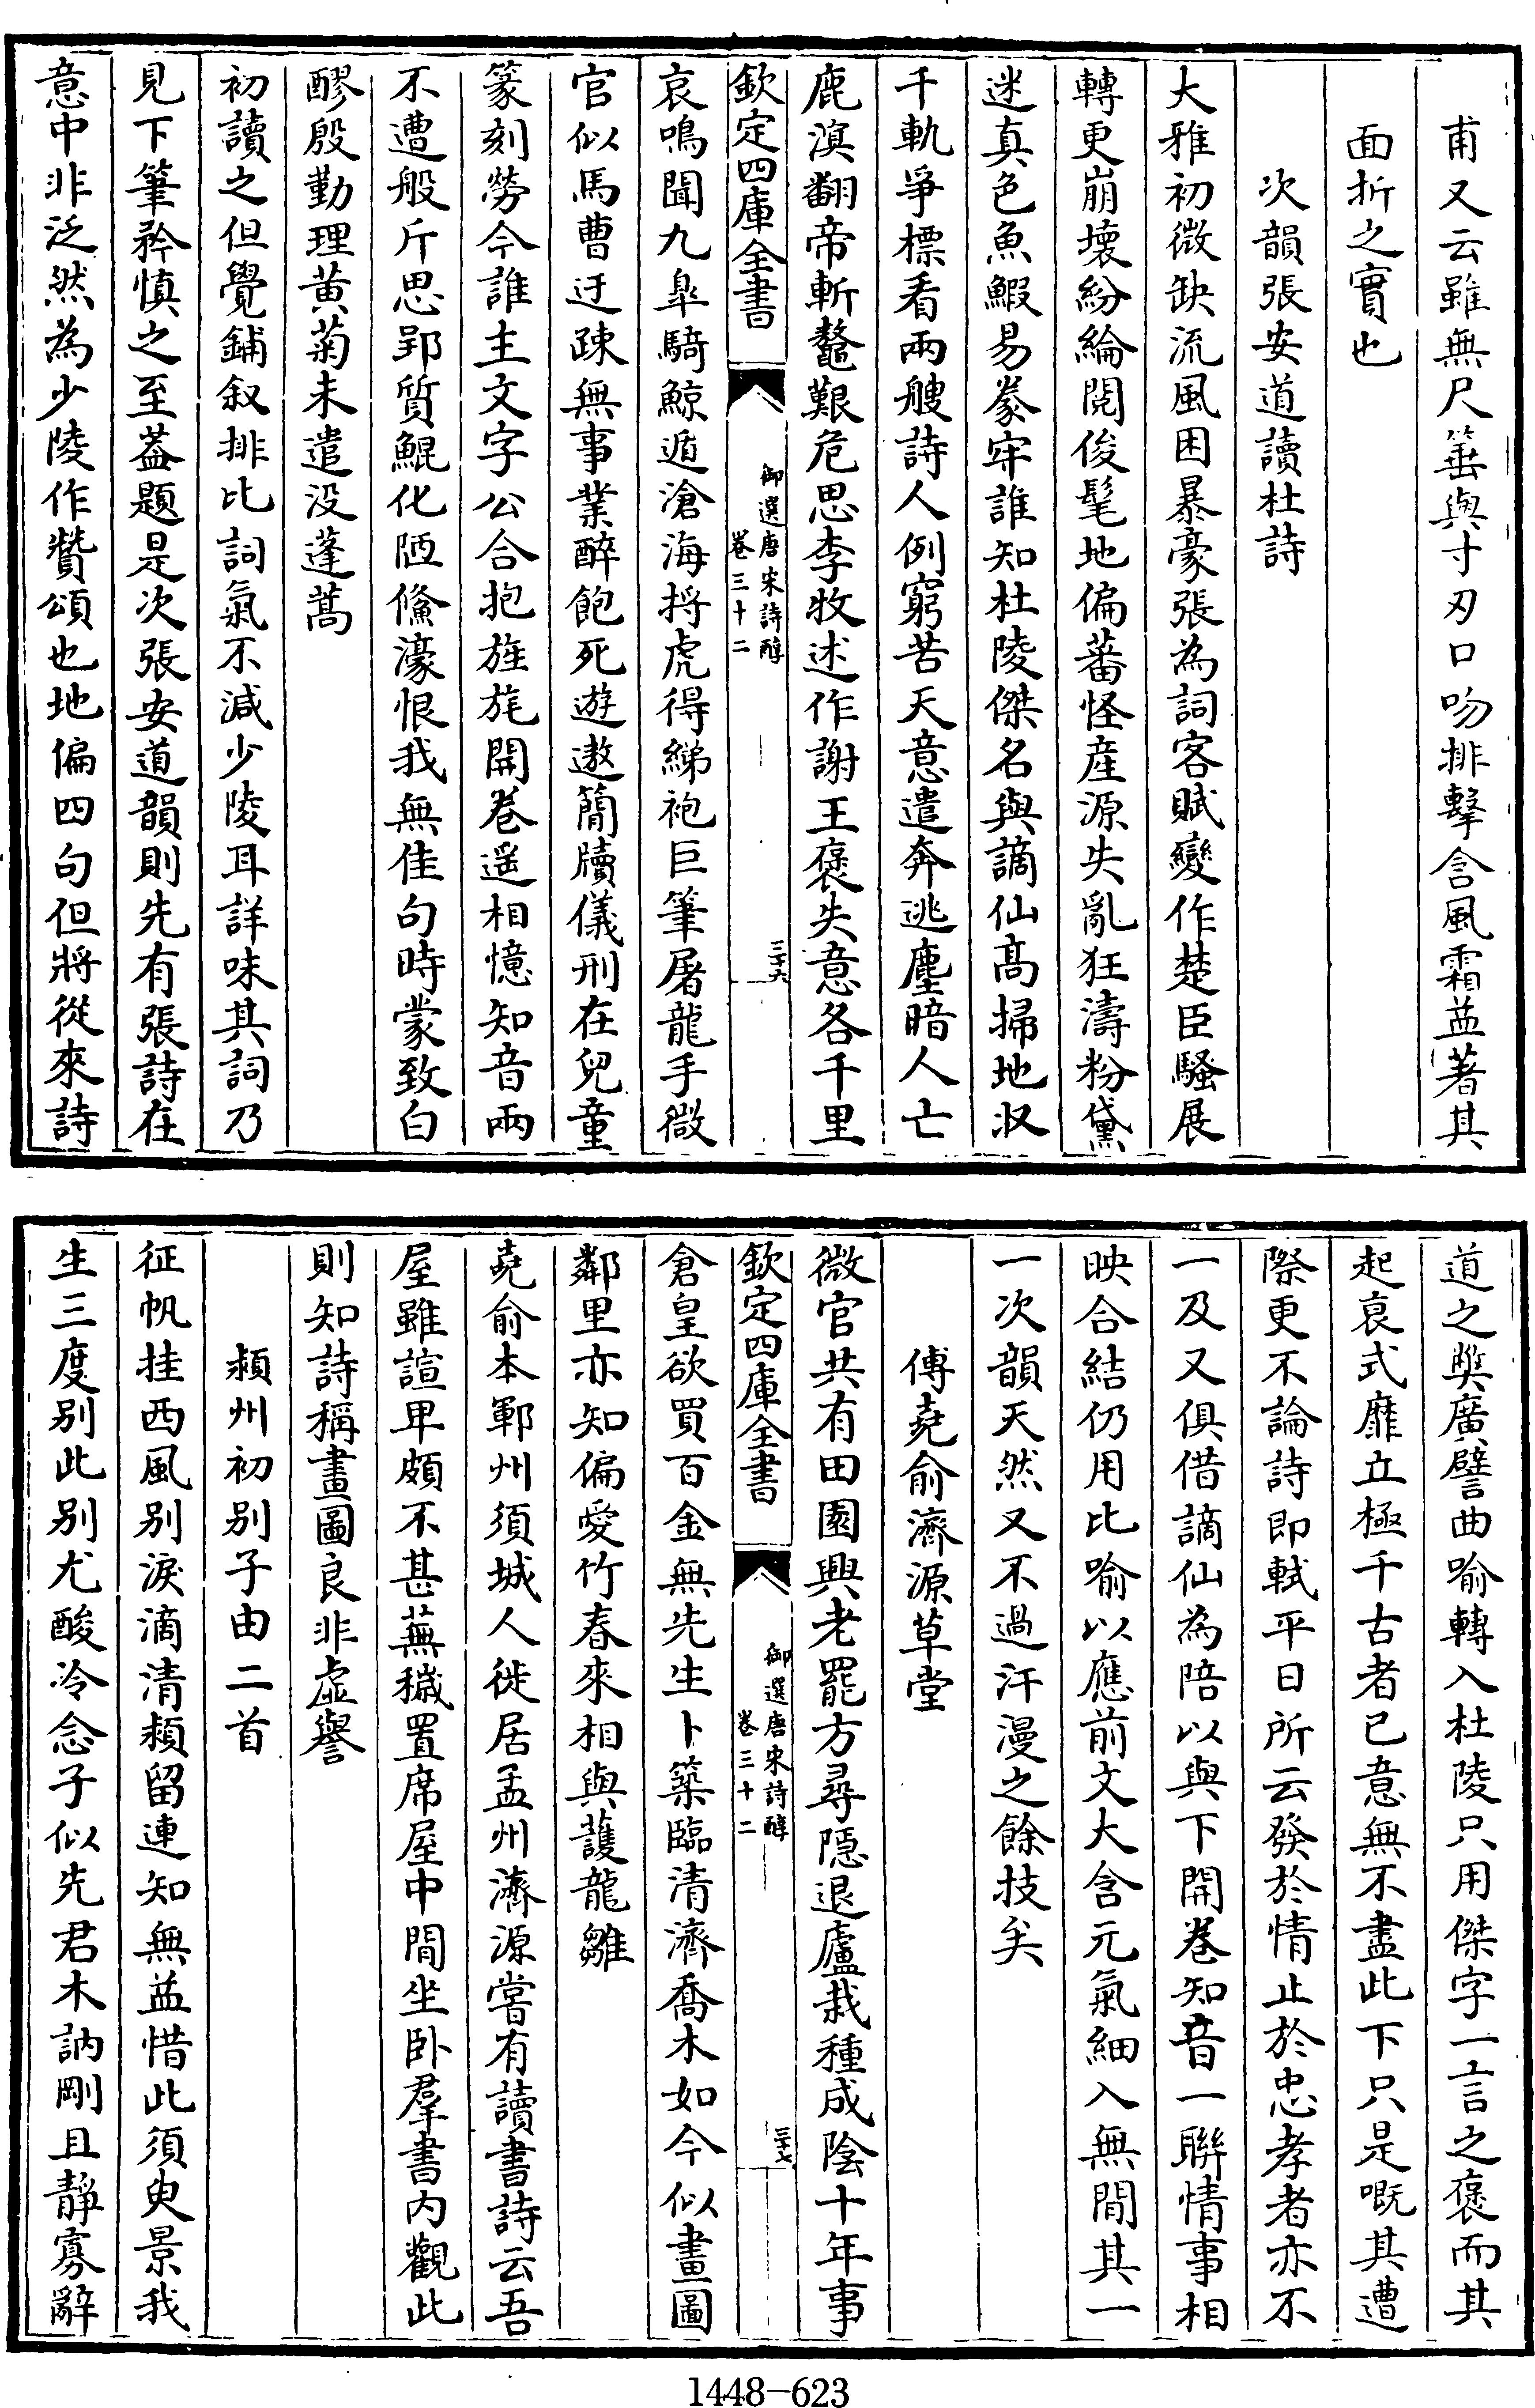 甫又云雖無尺箠與寸刃口吻排擊含風霜益著其
面折之實也
次韻張安道讀杜詩
大雅初微缺流風困暴豪張為詞客賦變作楚臣騷展
轉更崩壞紛綸閱俊髦地偏蕃怪產源失亂狂濤粉黛
迷真色魚鰕易豢牢誰知杜陵傑名與謫仙高掃地収
千軌爭標看兩艘詩人例窮苦天意遣奔逃塵暗人亡
鹿溟翻帝斬鼇艱危思李牧述作謝王褒失意各千里
欽定四庫全書
御選唐宋詩醇
卷三十二
三十六
哀鳴聞九臯騎鯨遁滄海捋虎得綈袍巨筆屠龍手微
官似馬曹迂疎無事業醉飽死遊遨簡牘儀刑在兒童
篆刻勞今誰主文字公合抱旌旄開卷遥相憶知音兩
不遭般斤思郢質鯤化陋鯈濠恨我無佳句時蒙致白
醪殷勤理黄菊未遣没蓬蒿
初讀之但覺鋪叙排比詞氣不減少陵耳詳味其詞乃
見下筆矜慎之至葢題是次張安道韻則先有張詩在
意中非泛然為少陵作贊頌也地偏四句但將從來詩
道之獘廣譬曲喻轉入杜陵只用傑字一言之褒而其
起哀式靡立極千古者已意無不盡此下只是嘅其遭
際更不論詩即軾平日所云發於情止於忠孝者亦不
一及又俱借謫仙為陪以與下開卷知音一聯情事相
映合結仍用比喻以應前文大含元氣細入無間其一
一次韻天然又不過汗漫之餘技矣
傅堯俞濟源草堂
微官共有田園興老罷方尋隱退廬栽種成陰十年事
欽定四庫全書
御選唐宋詩醇
卷三十二
三十七
倉皇欲買百金無先生卜築臨清濟喬木如今似畫圖
鄰里亦知偏愛竹春來相與護龍雛
堯俞本鄆州須城人徙居孟州濟源嘗有讀書詩云吾
屋雖諠卑頗不甚蕪穢置席屋中間坐卧羣書内觀此
則知詩稱畫圖良非虛譽
潁州初别子由二首
征帆挂西風别淚滴清潁留連知無益惜此須臾景我
生三度别此别尤酸冷念子似先君木訥剛且靜寡辭
1448-623